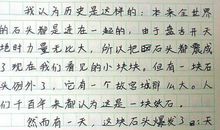 我认为历史是这样的：本来全世界
的石头都是连在一起的，由于盘古开天
地时力量无比大，所以把石头都震成
了现在我们看见的小块块，但有一块石
头例外了，它有一个故宫城那么大。人
们千百年来都认为这是一块妖石。
然而有一天，这块石头爆发了：天